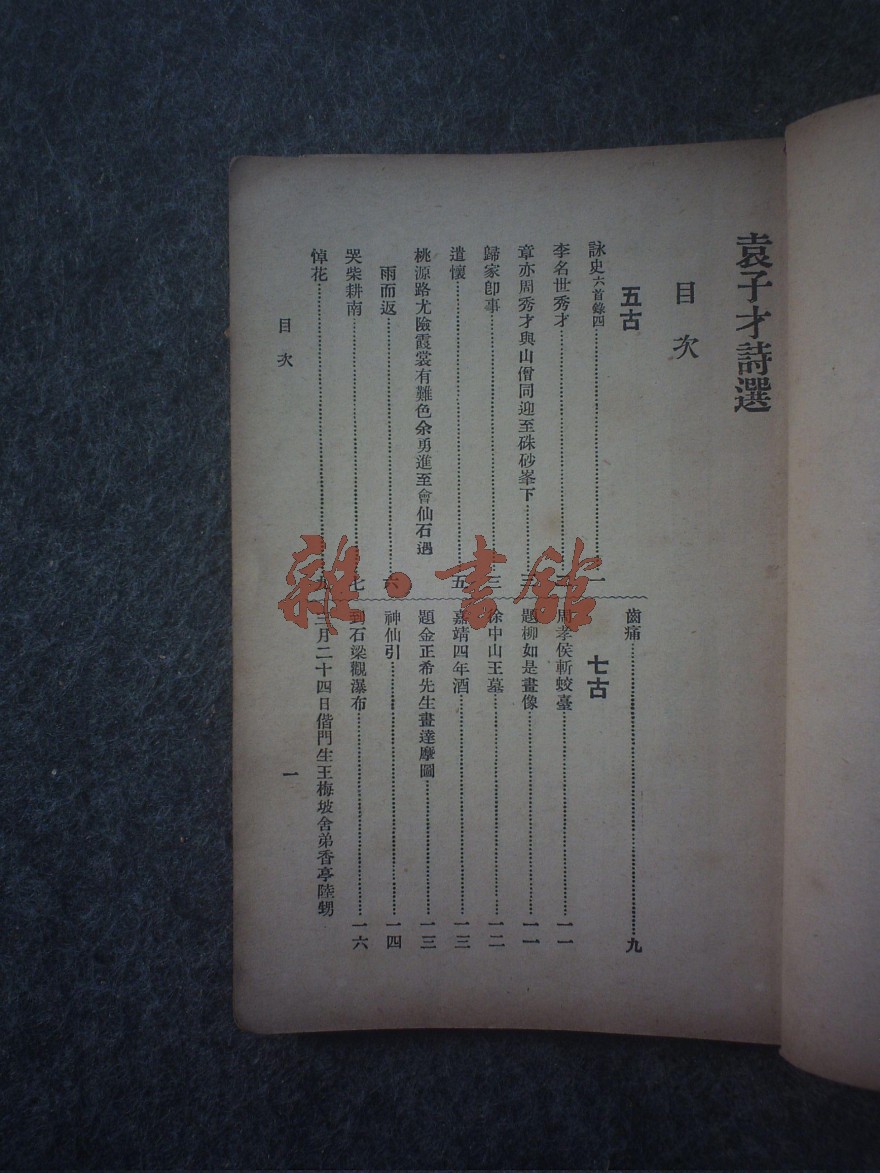 袁子才詩選
目次
五古
詠史六首錄四…一
李名世秀才…
章亦周秀才與山僧同迎至硃砂峯下…三
歸家卽事…三
遣懷…五
桃源路尤險霞裳有難色余勇進至會仙石遇
雨而返…六
哭柴耕南…七
悼花…九
齒痛…九
七古
周孝侯斬蛟臺…一一
題柳如是畫像…一一
徐中山王墓…一二
嘉靖四年酒…一三
題金正希先生畫達摩圖…一三
神仙引…一四
到石梁觀瀑布…一六
三月二十四日偕門生王梅坡舍弟香亭陸甥
目次
一
雜·書館